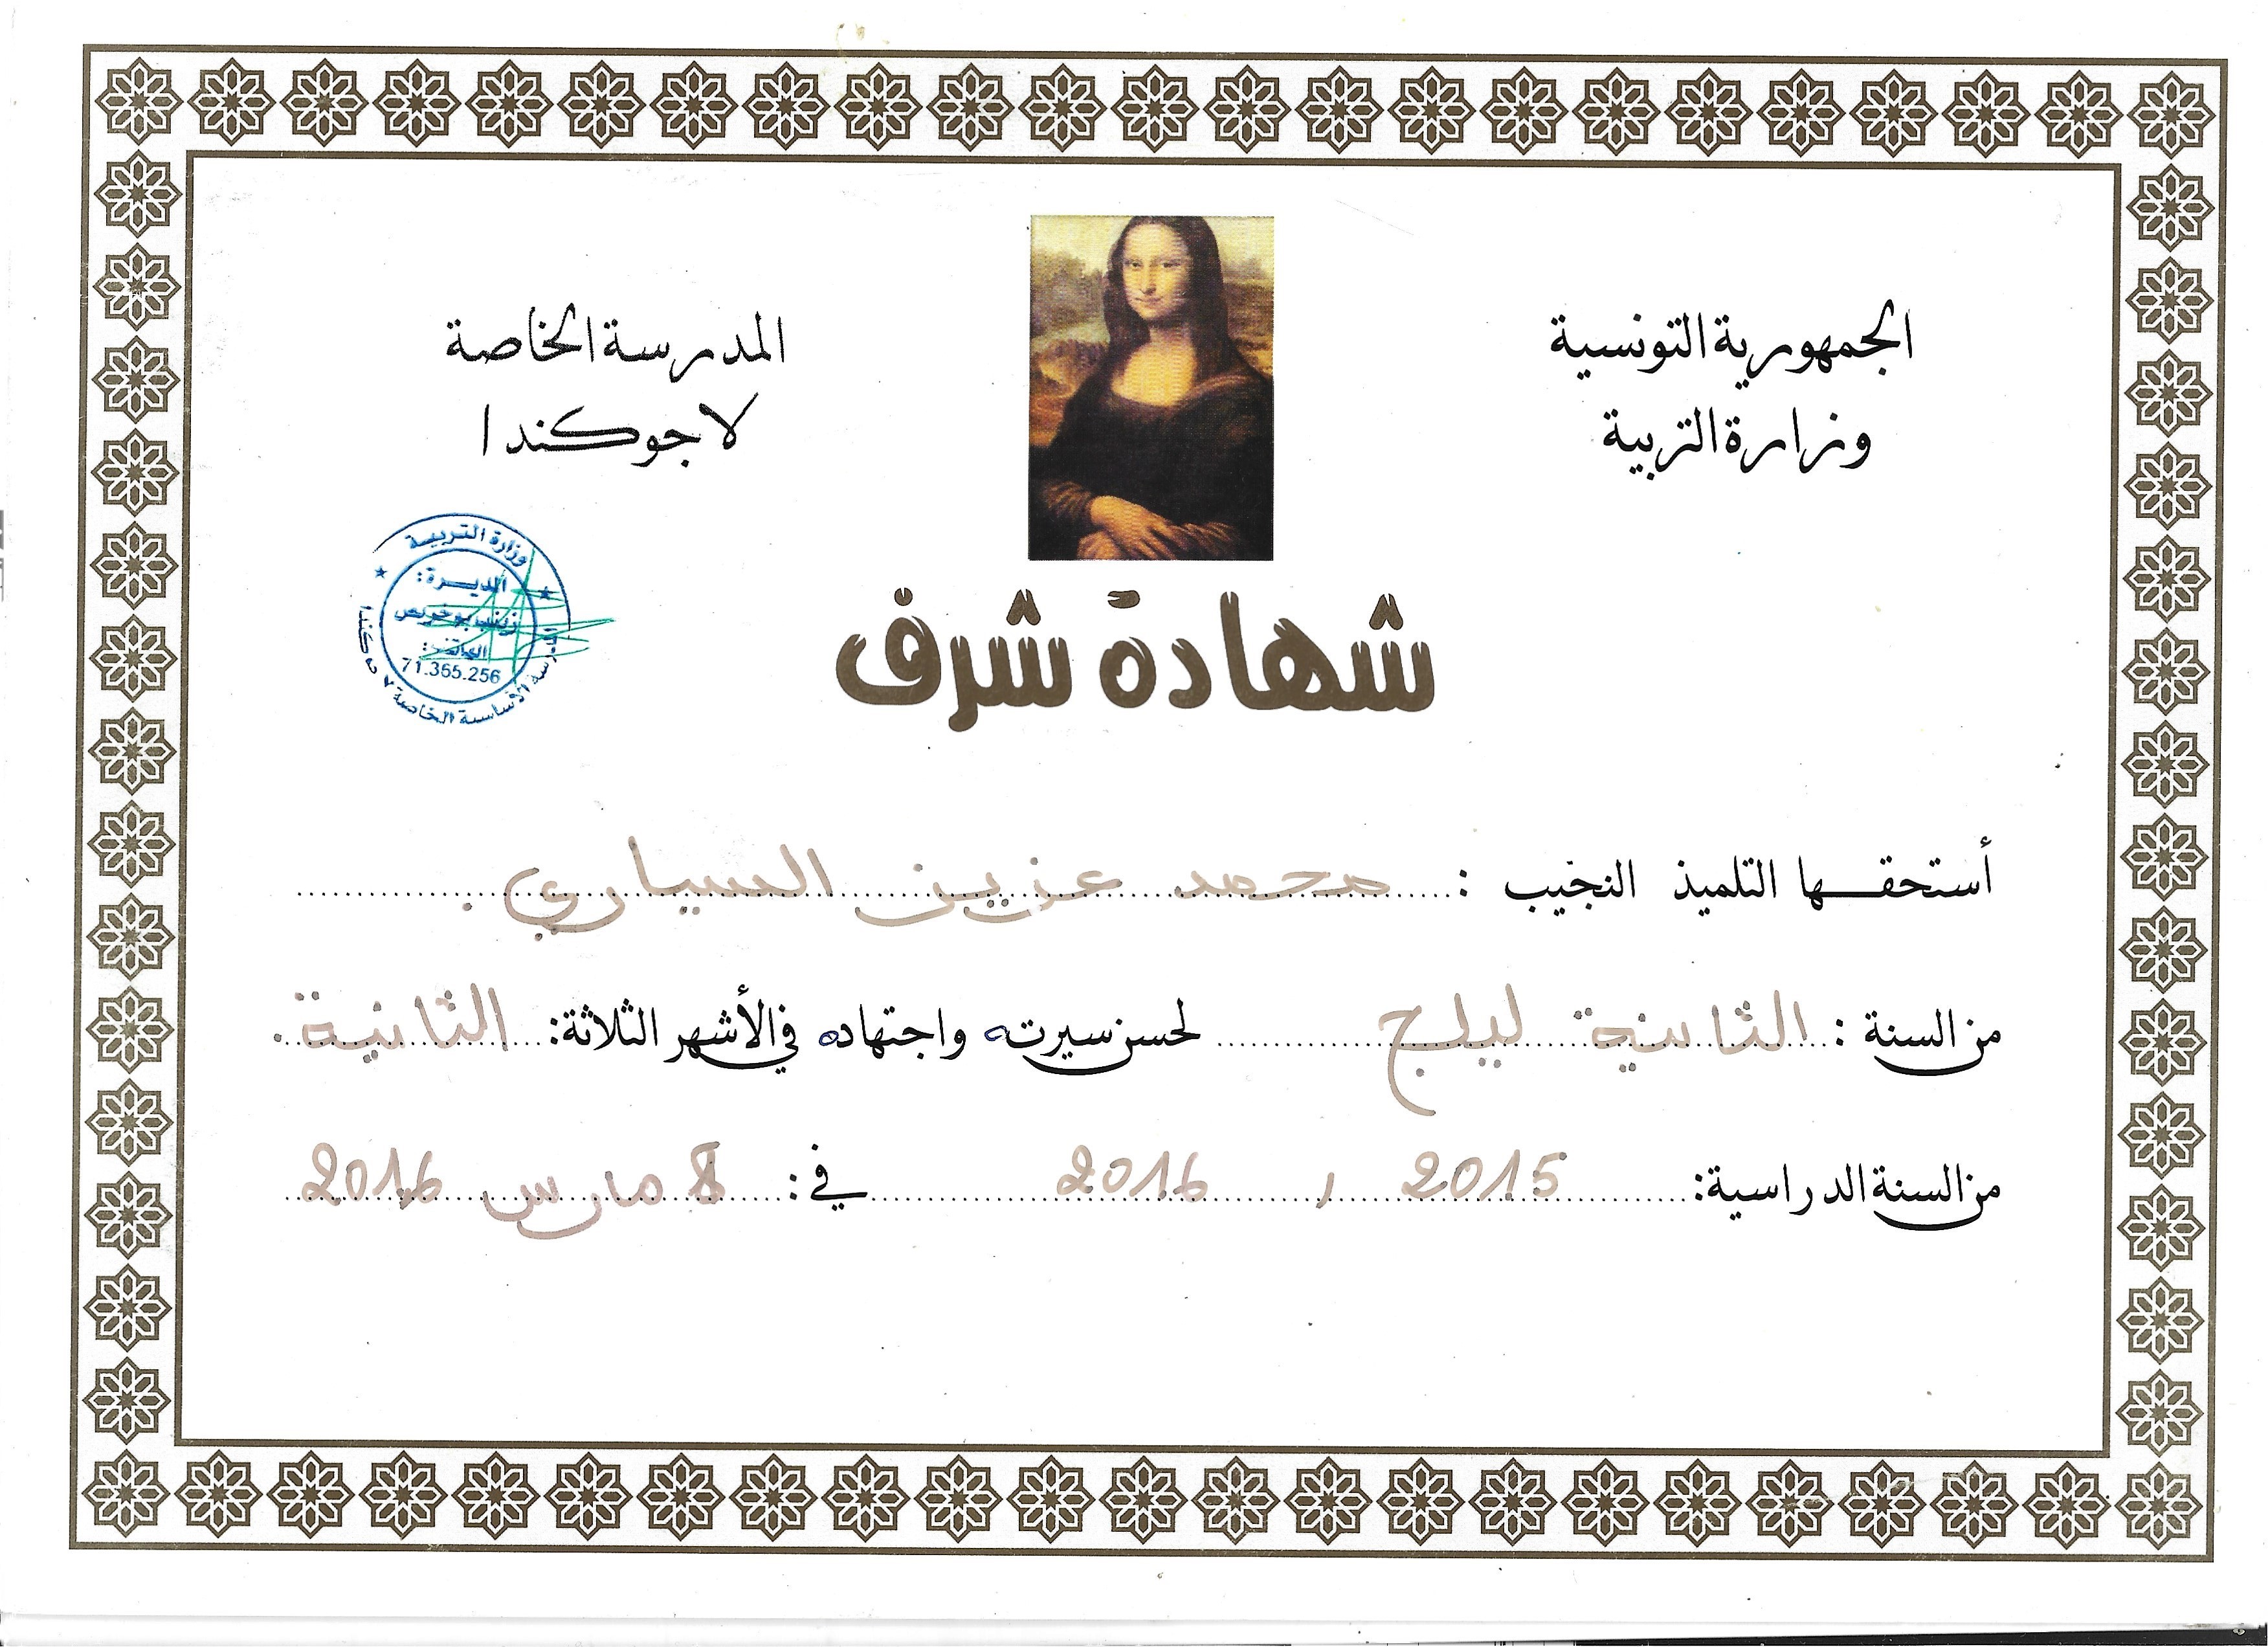 الجمهورية التونسية
وزارة التربية
المدرسة الخاصة
لاجوكندا
وزارة التربية
المديرة:
زينب
الهاتف:
71.365.256
المدرسة الأساسية الخاصة لاجوكندا
شهادة شرف
أستحقها التلميذ النجيب : محمد عزيز السياري
من السنة : الثانية لحسن سيرته واجتهاده في الأشهر الثلاثة: الثانية
من السنة الدراسية: 2015 / 2016 في: 8 مارس 2016